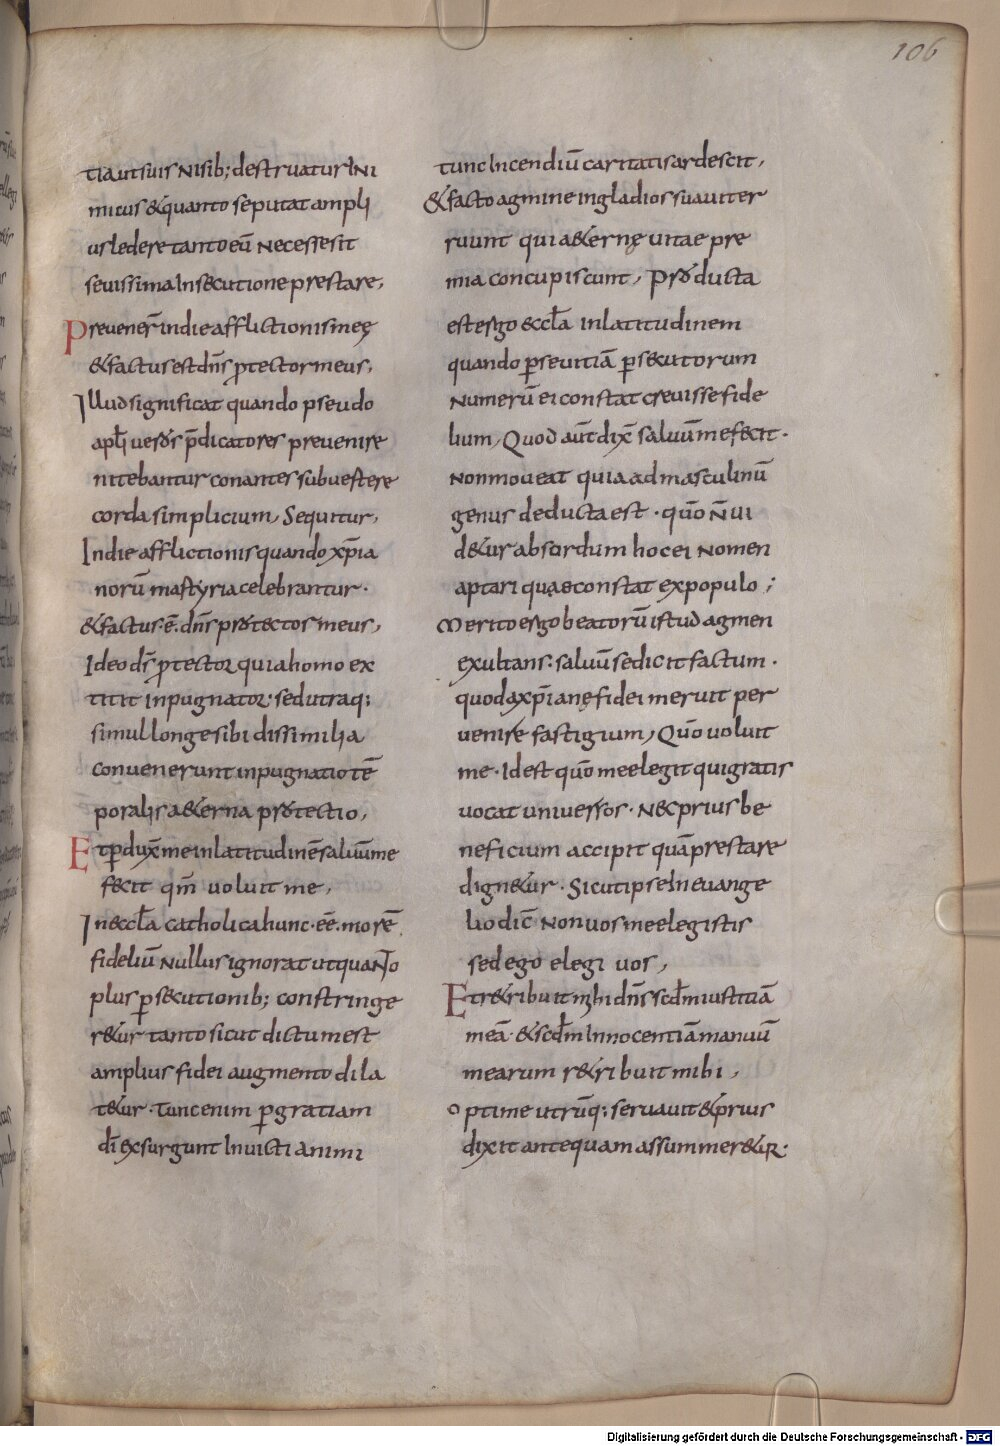 106
tia ut suis nisib; destruatur ini
micus & quanto se putat ampli
us ledere tanto eū necesse sit
sevissima insecutione prestare,
Prevener̄ in die afflictionis meę
& factus est dn̄s ꝓtector meus,
Illud significat quando pseudo
apłi veros p̄dicatores prevenire
nitebantur conantes subvertere
corda simplicium, Sequitur,
In die afflictionis quando xp̄ia
norū martyria celebrantur.
& factus .ē. dn̄s protector meus,
Ideo dn̄s ꝓtector quia homo ex
titit inpugnator. sed utraq;
simul longe sibi dissimilia
convenerunt inpugnatio tē
poralis a&erna protectio,
Et ꝓdux̄ me in latitudinē salvū me
fecit qm̄ voluit me,
In eccła catholica hunc .eē. morē
fideliū nullus ignorat ut quanto
plus ꝑsecutionib; constringe
r&ur tanto sicut dictum est
amplius fidei augmento dila
t&ur. Tunc enim ꝑ gratiam
dī exsurgunt invicti animi
tunc incendiū caritatis ardescit,
& facto agmine in gladios suaviter
ruunt qui a&ernę vitae pre
mia concupiscunt, Producta
est ergo eccła in latitudinem
quando ꝑ sevitiā ꝑsecutorum
numerū ei constat crevisse fide
lium, Quod aūt dix̄ salvūm me fecit.
non moveat quia ad masculinū
genus deducta est. quō n̄ vi
d&ur absordum hoc ei nomen
aptari quae constat ex populo;
Merito ergo beatorū istud agmen
exultans: salvū se dicit factum.
quod ad xp̄ianę fidei meruit per
venire fastigium, Quō voluit
me. Id est quō me elegit qui gratis
vocat universos. Nec prius be
neficium accipit quā prestare
dign&ur. Sicut ipse in evange
lio dic̄ non vos me elegistis
sed ego elegi vos,
Et r&ribuit mihi dn̄s scdm̄ iustitiā
meā. & scdm̄ innocentiā manuū
mearum r&ribuit mihi,
Optime utrūq; servavit & prius
dixit antequam assummer&ur.
Digitalisierung gefördert durch die Deutsche Forschungsgemeinschaft - DFG